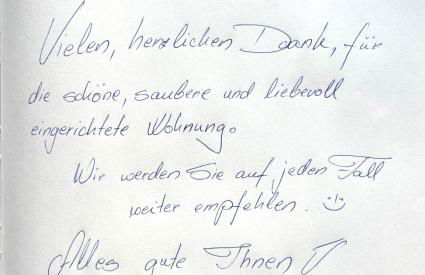 Vielen, herzlichen Dank, für
die schöne, saubere und liebevoll
eingerichtete Wohnung.
Wir werden Sie auf jeden Fall
weiter empfehlen. :-)
Alles gute Ihnen!